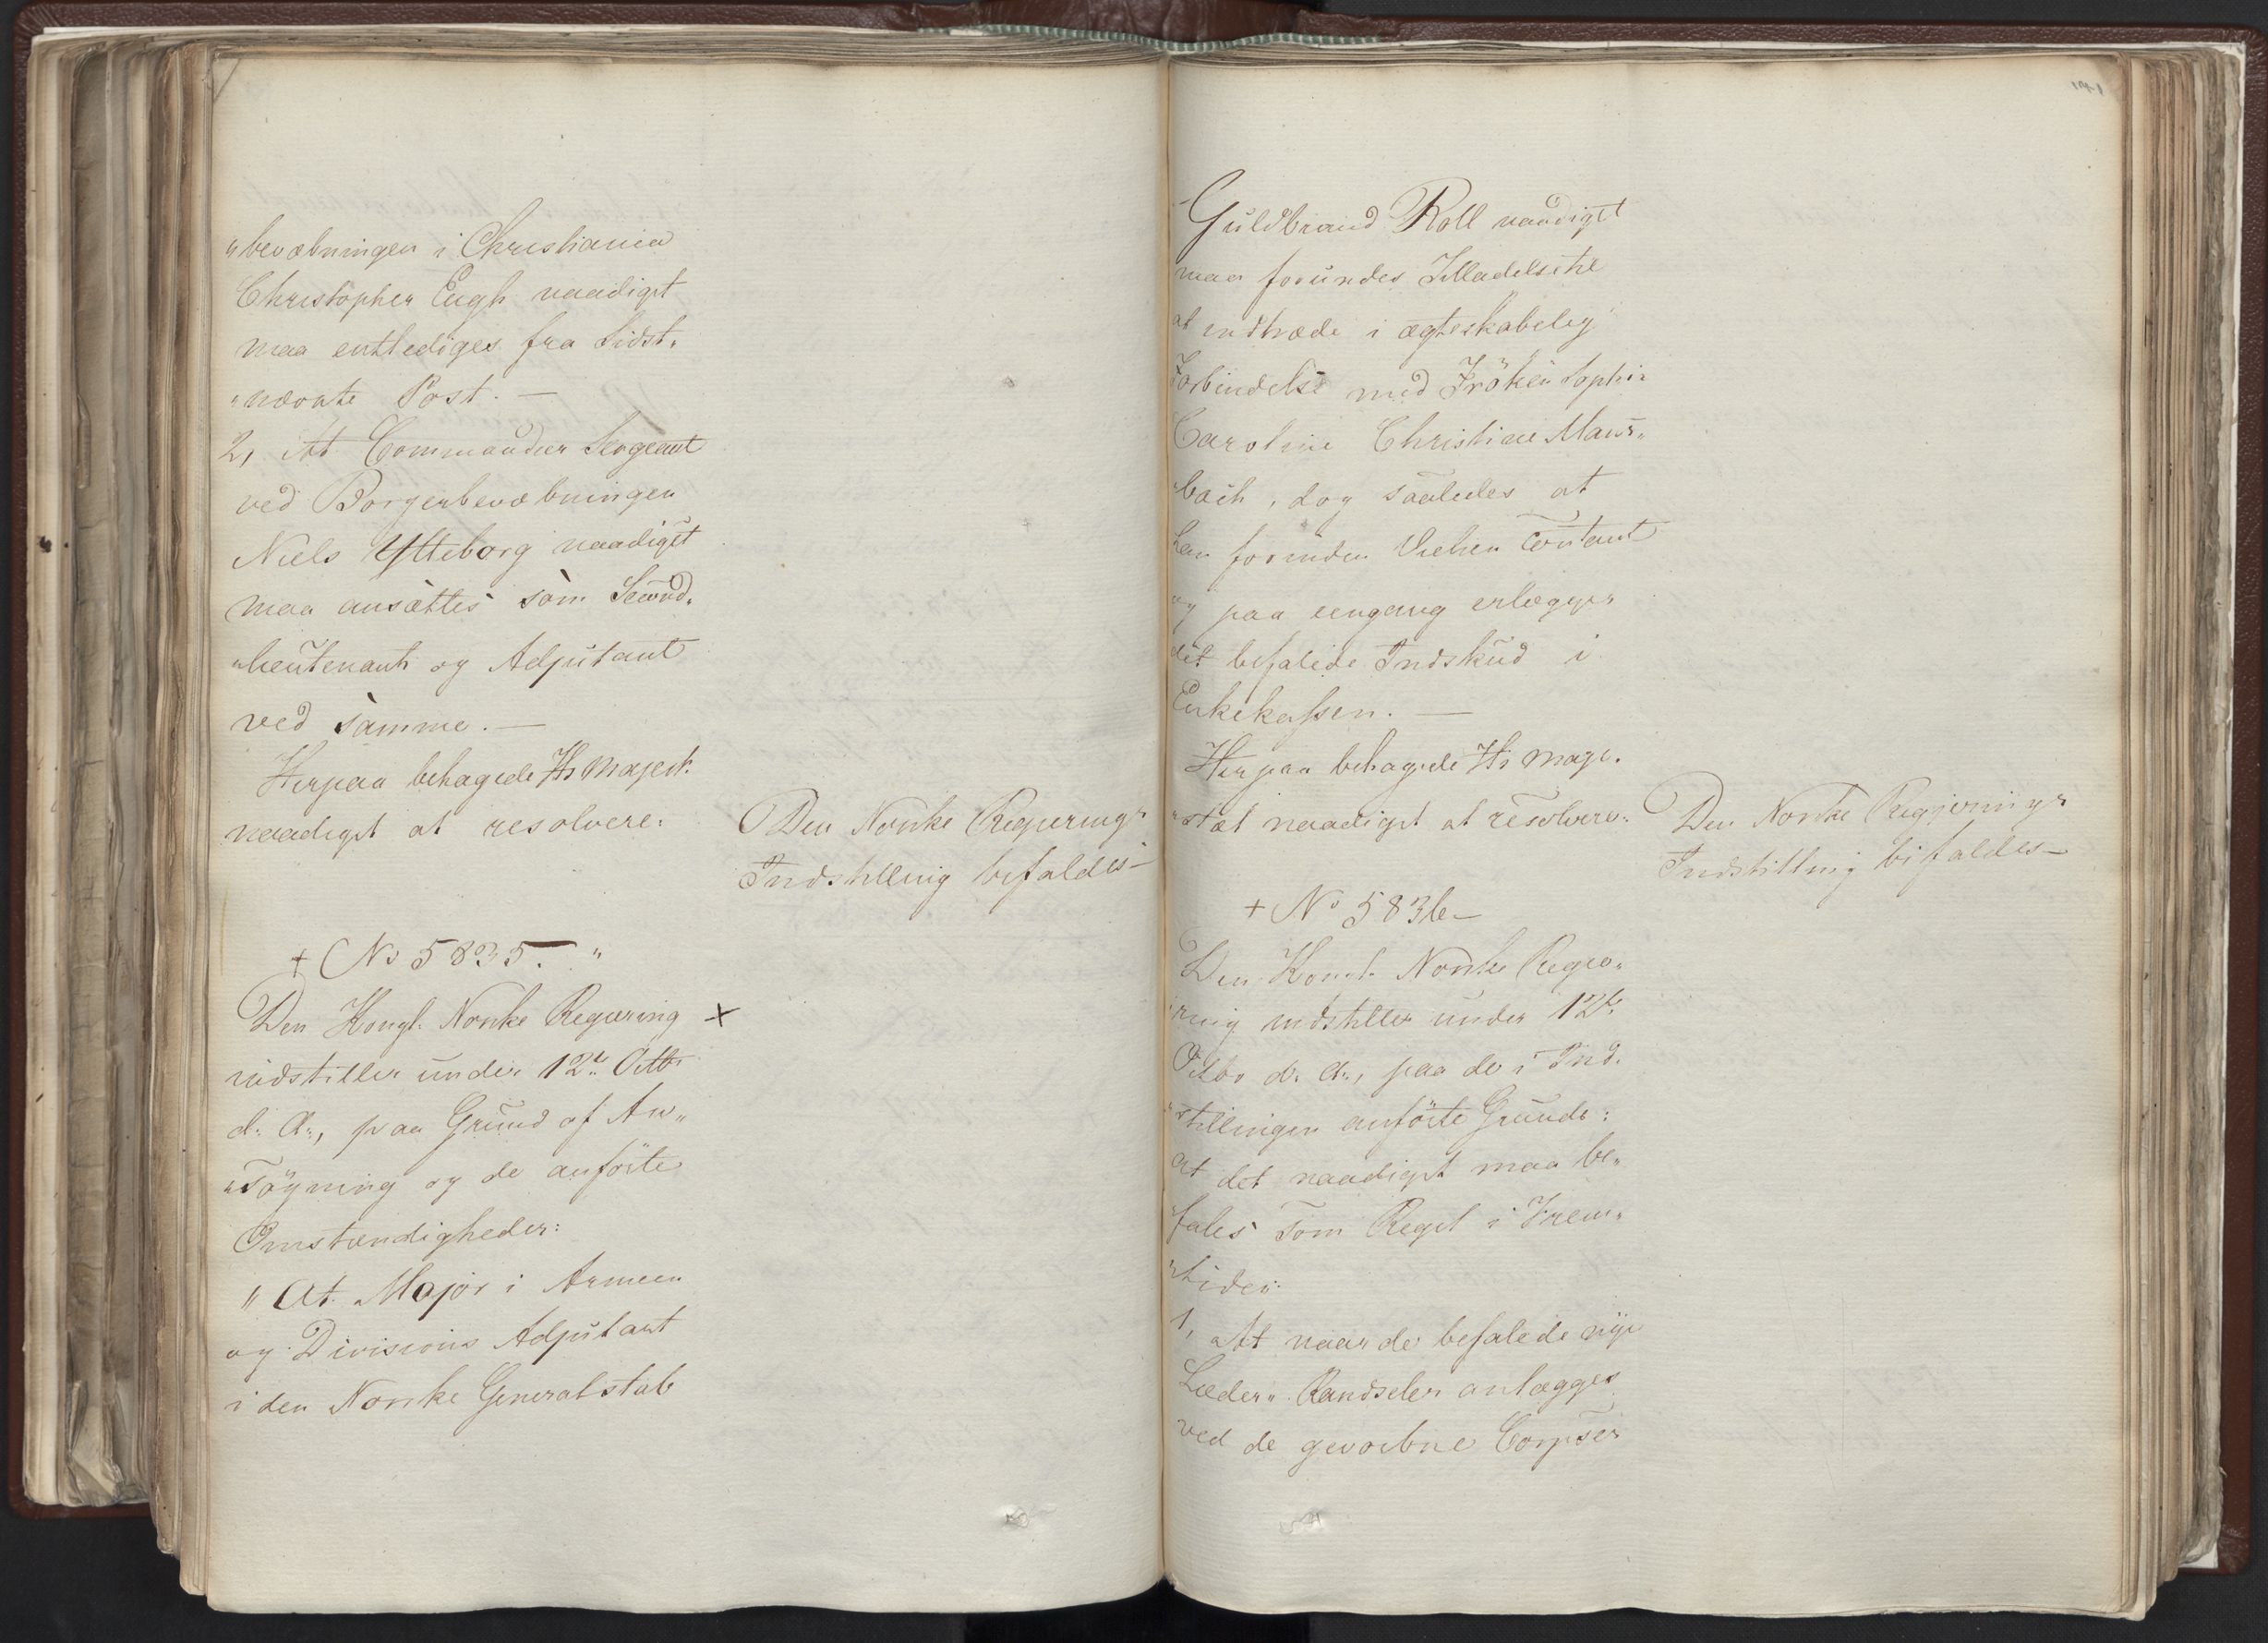 „bevæbningen i Christiania
Christopher Engh naadigst
maa entlediges fra sidst„
„nævnte Post. —
2, At Commandeer Sergeant
ved Borgerbevæbningen
Niels Ytteborg naadigst
maa ansættes som Second„
„lieutenant og Adjutant
ved samme. —
Herpaa behagede Hs Majest.
naadigst at resolvere:
Den Norske Regjerings
Indstilling bifaldes —
+ No 5835. „
Den Kongl. Norske Regjering +
indstiller under 12te Octbr
d. A., paa Grund af An„
„søgning og de anførte
Omstændigheder:
„ At Major i Armeen
og Divisions Adjutant
i den Norske Generalstab
141
Guldbrand Roll naadigst
maa forundes Tilladelse til
at indtræde i ægteskabelig
Forbindelse med Frøken Sophie
Caroline Christine Maur„
„bach, dog saaledes at
han forinden Vielsen contant
og paa eengang erlægger
det befalede Indskud i
Enkekassen. —
Herpaa behagede Hs Maje„
„stæt naadigst at resolvere:
Den Norske Regjerings
Indstilling bifaldes —
+ No 5836 —
Den Kongl. Norske Regje„
„ring indstiller under 12te
Octbr d. A., paa de i Ind„
„stillingen anførte Grunde:
At det naadigst maa be„
„fales som Regel i Frem„
„tiden:
1, At naar de befalede nye
Læder„ Randseler anlægges
ved de gevorbne Corpser